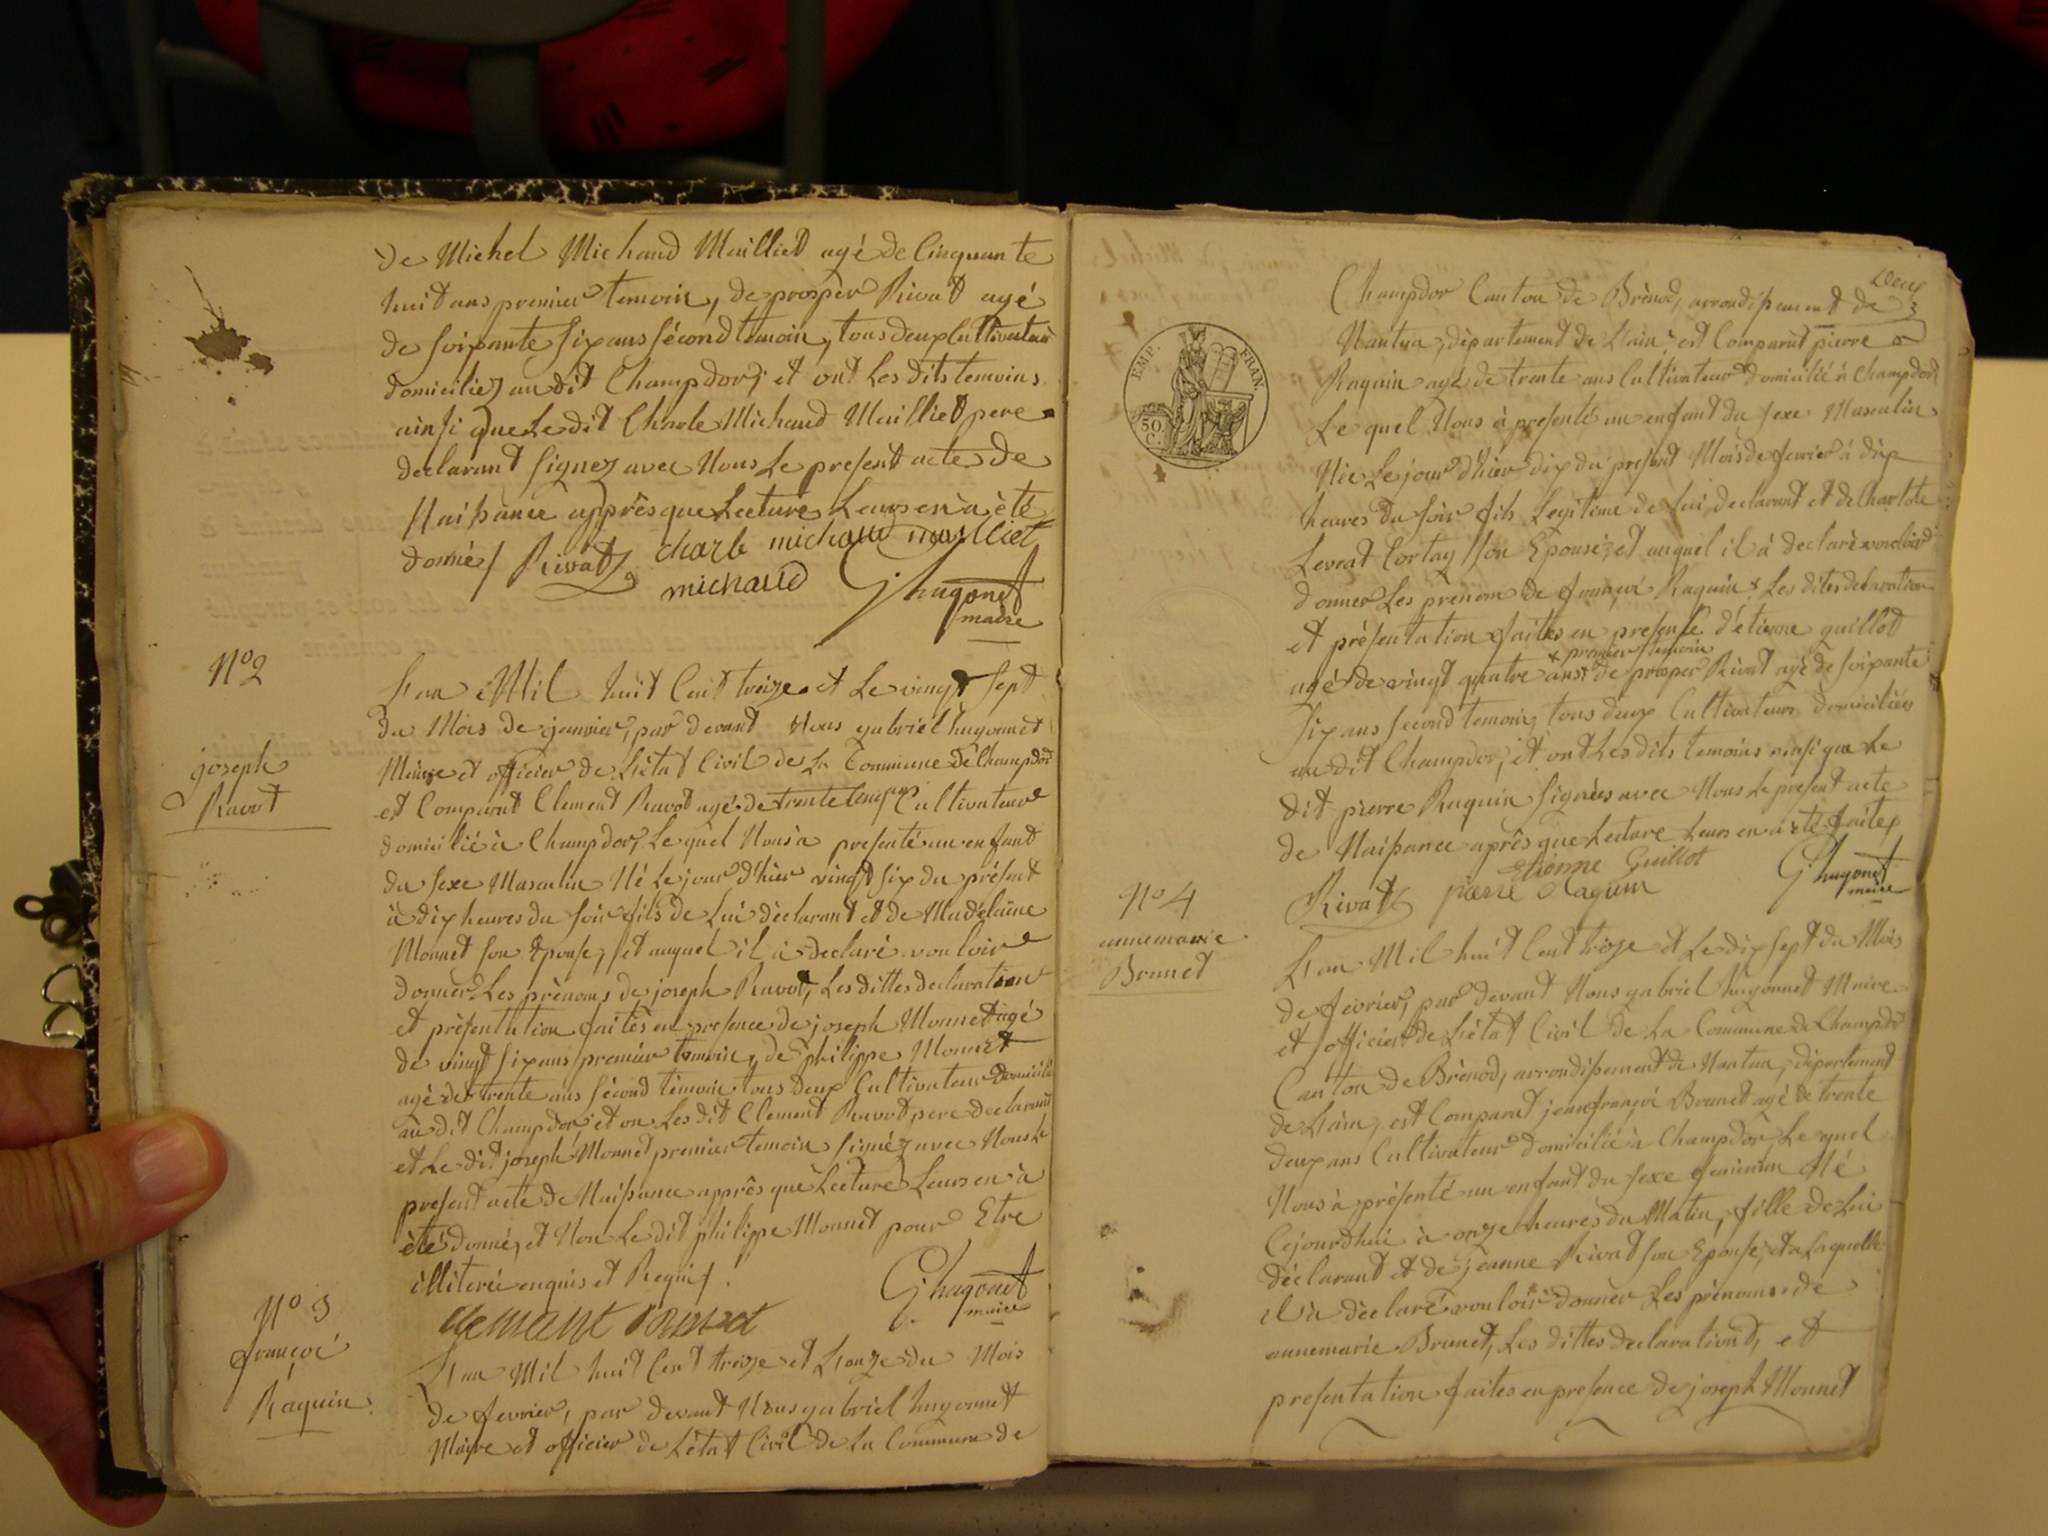 de Michel Michaud Mailliet agé de Cinquante
huit ans premier temoin, de prosper Rivat agé
de soixante six ans sécond temoin, tous deux Cultivateurs
domiciliez au dit Champdor; et ont Les dits temoins
ainsi que Le dit Charle Michaud Mailliet pere
declarant signez avec Nous Le present acte de
Naissance apprès que Lecture Leurs en à été
donné / Rivat charle michaud mailliet
michaud G. hugonet
maire
N° 2
joseph
Ravot
L'an Mil huit Cent treize et Le vingt sept
du Mois de janvier, par devant Nous gabriel hugonnet
Maire et officier de L'état Civil de La Commune de Champdor
est Comparut Clement Ravot agé de trente Cinq ans Cultivateur
domicilié à Champdor, Le quel Nous à presenté un enfant
du sexe Masculin Né Le jour d'hier vingt six du présent
à dix heures du soir fils de Lui déclarant et de Madelaine
Monnet son Epouse, et auquel il à declaré vouloir
donner Les prénoms de joseph Ravot, Les dittes declaration
et présentation faites en presence de joseph Monnet agé
de vingt six ans premier temoin, de philippe Monnet
agé de trente ans sécond témoin tous deux Cultivateur domicilié
au dit Champdor et on Les dit Clement Ravot pere declarant
et Le dit joseph Monnet premier temoin signéz avec Nous Le
present acte de Naissance apprès que Lecture Leurs en à
été donné, et Non Le dit philippe Monnet pour Etre
illiteré enquis et Requis /.
G. hugonet
maire
clemant ravot
N° 3
françoi
Raquin
L'an Mil huit Cent treize et L'onze du Mois
de fevrier, par devant Nous gabriel hugonnet
Maire et officier de L'état Civil de La Commune de
Deux
EMP. FRAN.
50 C.
Champdor Canton de Brénod, arrondissement de
Nantua, département de L'ain, est Comparut pierre
Raquin agé de trente ans Cultivateur domicilié à Champdor
Le quel Nous à presenté un enfant du sexe Masculin
Née Le jour d'hier dix du présent Mois de fevrier à dix
heures du soir fils Legitime de Lui declarant et de Charlote
Levrat Cortay son Epouse, et auquel il à declaré vouloir
donner Les prénom de françoi Raquin Les dites declaration
et présentation faites en presense d'étienne guillot
x premier temoin
agé de vingt quatre ans x de prosper Rivat agé de soixante
six ans second temoin, tous deux Cultivateurs domiciliés
au dit Champdor, et ont Les dits temoins ainsi que Le
dit pierre Raquin signés avec Nous Le present acte
de Naissance après que Lecture Leurs en à été faite
etienne Guillot
Rivat pierre Raquin G. hugonet
maire
N° 4
annemarie
Brunet
L'an Mil huit Cent treize et Le dix sept du Mois
de fevrier, par devant Nous gabriel hugonnet Maire
et officier de L'état Civil de La Commune de Champdor
Canton de Brénod, arrondissement de Nantua, département
de L'ain, est Comparut jean françoi Brunet agé de trente
deux ans Cultivateur domicilié à Champdor Le quel
Nous à présenté un enfant du sexe feminin Né
Cejourdhui à onze heures du Matin, fille de Lui
déclarant et de jeanne Rivat son Epouse, et a Laquelle
il à déclaré vouloir donner Les prénoms de
annemarie Brunet, Les dittes declarations, et
presentation faites en presence de joseph Monnet